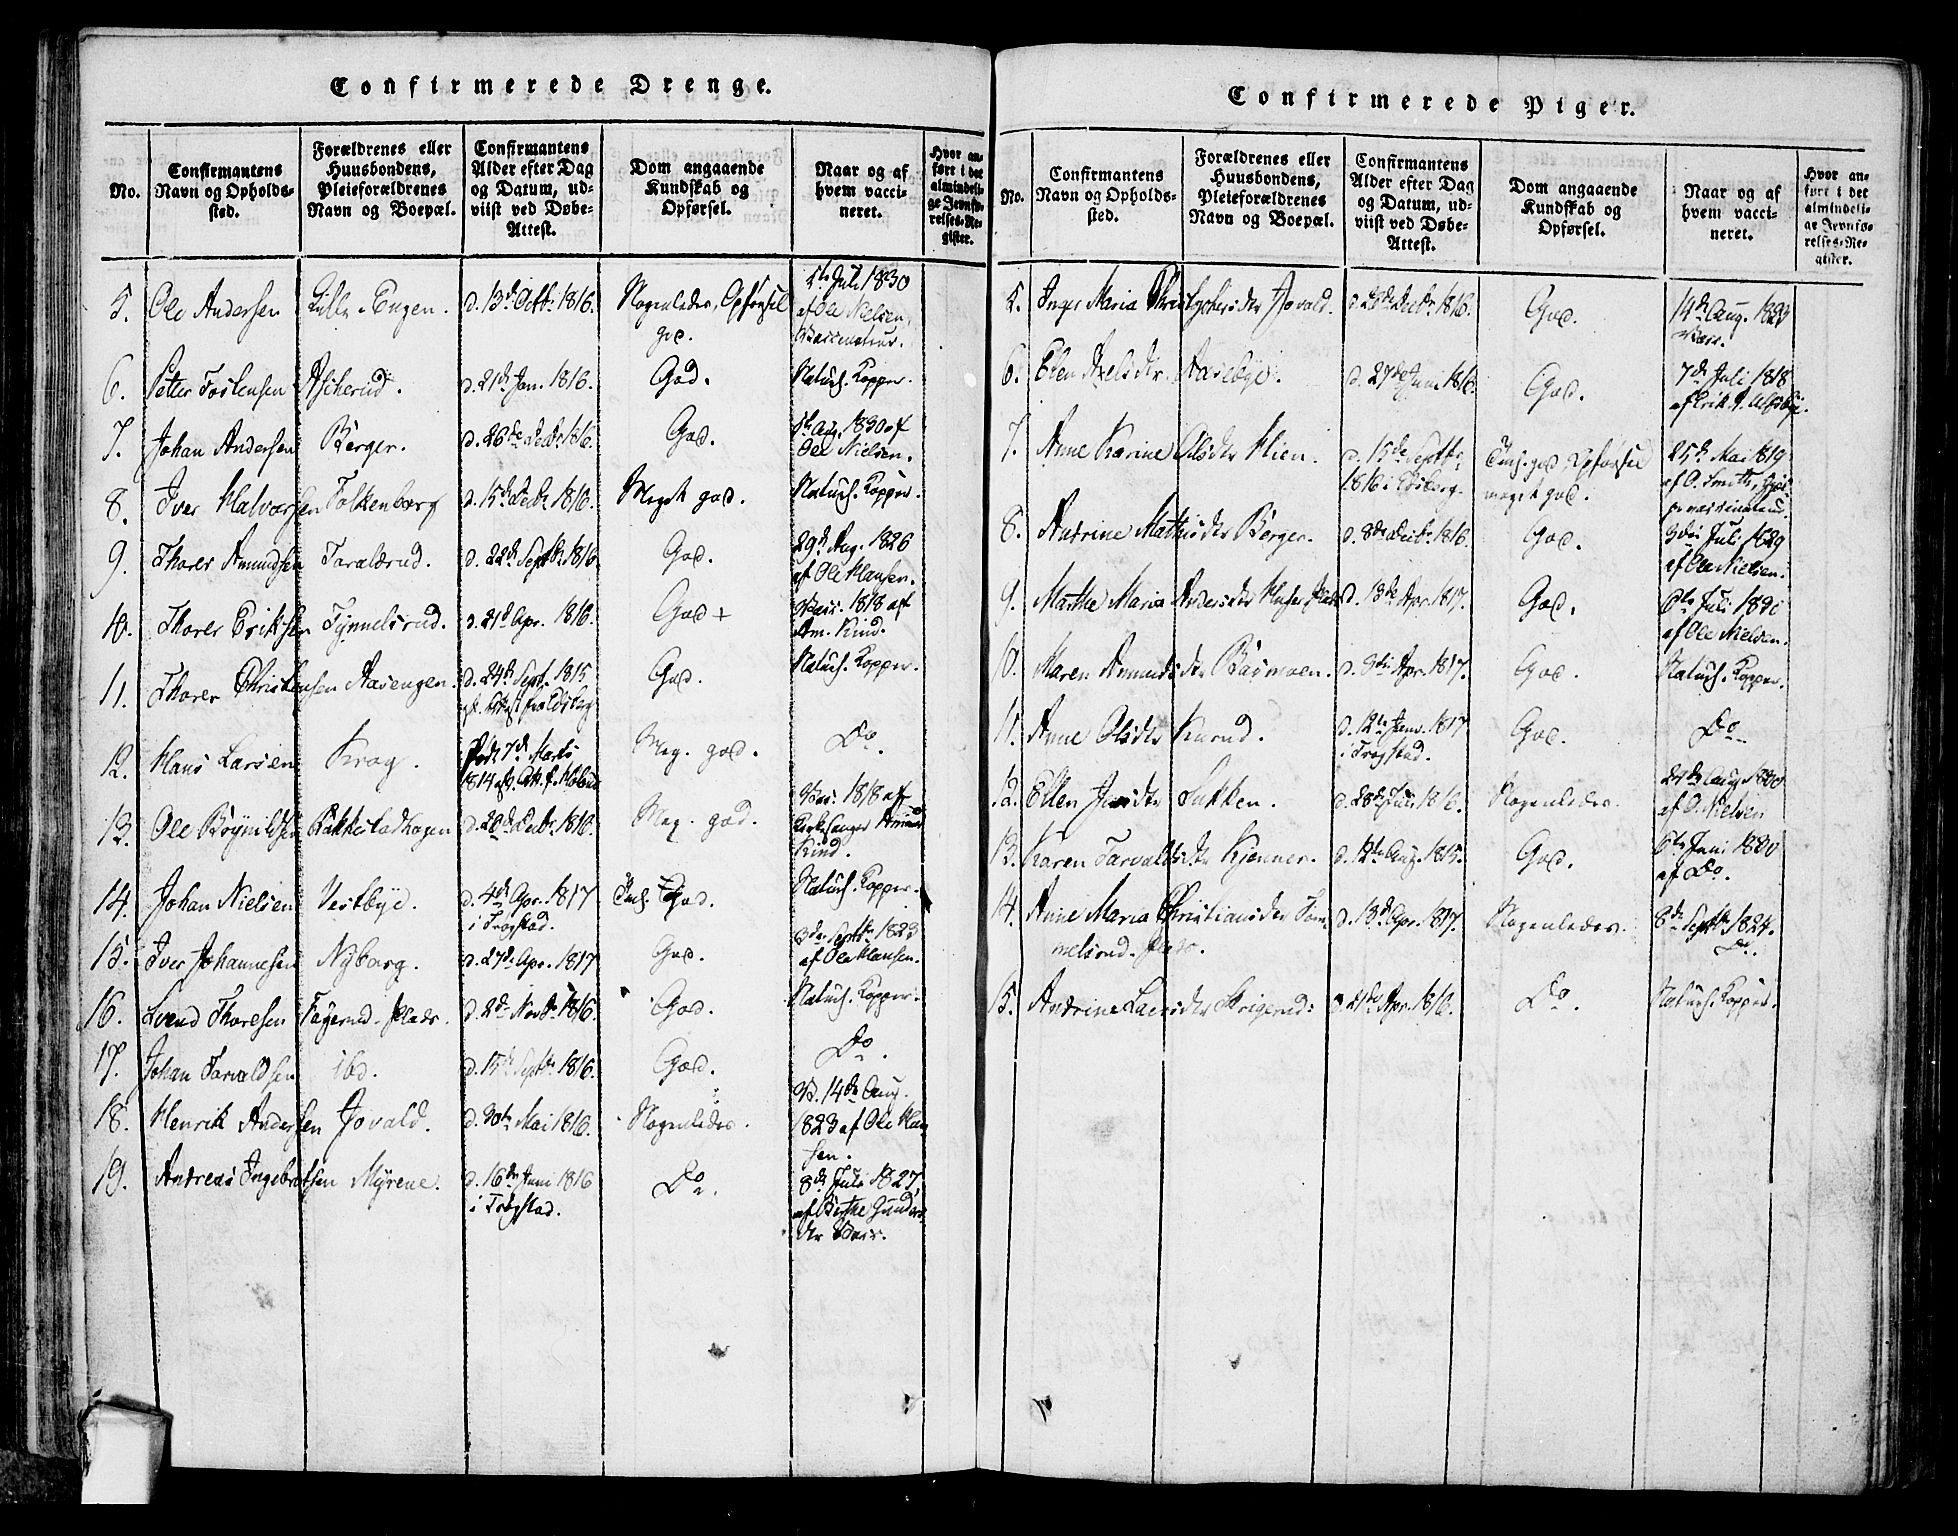 Confirmerede Drenge.
No.
Confirmantens
Navn og Opholds-
sted.
Forældrenes eller
Huusbondens,
Pleieforældrenes
Navn og Boepæl.
Confirmantens
Alder efter Dag
og Datum, ud-
viist ved Døbe-
Attest.
Dom angaaende
Kundskab og
Opførsel.
Naar og af
hvem vacci-
neret.
Hvor an-
ført i det
almindeli-
ge Jevnfø-
relses-Re-
gister.
5. Ole Andersen Lille-Engen. d. 13de Octbr 1816. Nogenledes, Opførsel 5te Juli 1830
god. af Ole Nielsen,
Vaccinateur.
6. Peter Torstensen Ascherud. d. 21de Jan. 1816. God. Naturl. Kopper.
7. Johan Andersen Berger. d. 26de Decbr 1816. God. 5te Aug. 1830 af
Ole Nielsen.
8. Iver Halvorsen Falkenborg d. 15de Decbr 1816. Meget god. Naturl. Kopper.
9. Thorer Amundsen Taraldrud. d. 22de Septbr 1816. God. 29de Aug. 1826
af Ole Hansen.
10. Thorer Eriksen Tynnelsrud. d. 21de Apr. 1816. God + Vacc. 1818 af
Am. Kind.
11. Thorer Christensen Aasengen. d. 24de Sept. 1815 God. Naturl. Kopper.
12. Hans Larsen Krog. Født 7de Marts Meg. god. Do.
1814
13. Ole Brynildsen Bakkestadhagen d. 20de Decbr 1816. Meg. god. Vacc. 1818 af
Kirkesanger Amund
Kind.
14. Johan Nielsen Vestbye. d. 4de Apr. 1817 God. Naturl. Kopper.
i Trøgstad.
15. Iver Johannesen Nyborg. d. 27de Apr. 1817 God. 3de Septbr 1823
af Ole Hansen.
16. Svend Thoresen Fagerud-Plads. d. 2de Novbr 1816. God. Naturl. Kopper.
17. Johan Tarvaldsen ibd. d. 15de Septbr 1816. God. Do.
18. Henrik Andersen Jovald. d. 30te Mai 1816. Nogenledes. V. 14de Aug.
1823 af Ole Han-
sen.
19. Andreas Ingebretsen Myrene. d. 16de Juni 1816 Do. 8de Juli 1827
i Trøgstad. af Berthe Gunders-
dtr Vacc.
Confirmerede Piger.
No.
Confirmantens
Navn og Opholds-
sted.
Forældrenes eller
Huusbondens,
Pleieforældrenes
Navn og Boepæl.
Confirmantens
Alder efter Dag
og Datum, ud-
viist ved Døbe-
Attest.
Dom angaaende
Kundskab og
Opførsel.
Naar og af
hvem vacci-
neret.
Hvor an-
ført i det
almindeli-
ge Jevnfø-
relses-Re-
gister.
5. Inger Maria Christophersdtr Jovald. d. Decbr 1816. God. 14de Aug. 1823
Vacc.
6. Elen Axelsdtr Aasebye. d. 27de Juni 1816. God. 7de Juli 1818
af Erik
7. Anne Karine Olsdtr Klien. d. 15de Septbr Opførsel 25de Mai 1819
1816 i Eidsberg. meget god. af O. Smith,
8. Andrine Mathisdtr Berger. d. 8de Decbr 1816. God. 3die Juli 1829
af Ole Nielsen.
9. Marthe Maria Andersdtr d. 13de Apr. 1817. God. 6te Juli 1830
af Ole Nielsen.
10. Maren Amundsdtr Basmoen. d. 3die Apr. 1817. God. Naturl. Kopper.
11. Anne Olsdtr d. 12te Janr. 1817 God. Do
i Trøgstad.
12. Ellen Jensdtr Sukken. d. 28de Juli 1816. Nogenledes. Aug. 1830
af O. Nielsen
13. Karen Tarvaldsdtr Kjenner. d. 12te Aug. 1815. God. 6te Juni 1830
af Do.
14. Anne Maria Christiansdtr Tøm- d. 13de Apr. 1817. Nogenledes. 8de Septbr 1824.
melsrud-Plads. Do.
15. Andrine Larsdtr Skrigerud: d. 21de Apr. 1816. Do. Naturl. Kopper.